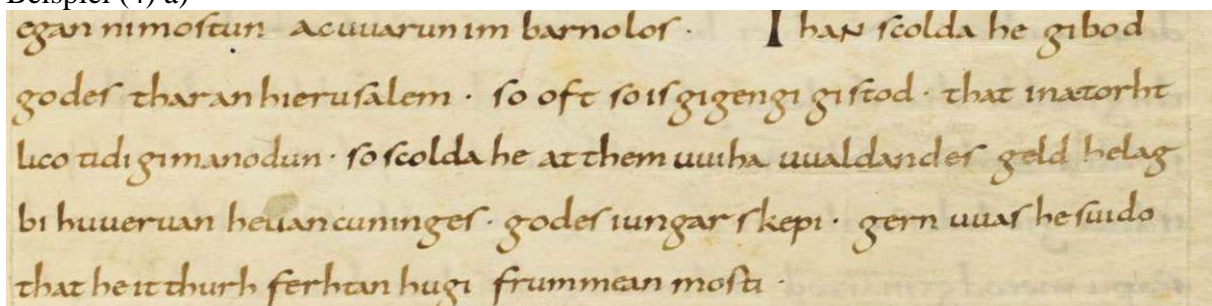 Beispiel (4) a)
egan nimostun acuuarun im barnolos · Than scolda he gibod
godes thar an hierusalem · so oft so is gigengi gistod · that ina torht
lico tidi gimanodun · so scolda he at them uuiha uualdandes geld helag
bi huueruan heuancuninges · godes iungarskepi · gern uuas he suido
that he it thurh ferhtan hugi frummean mosti ·